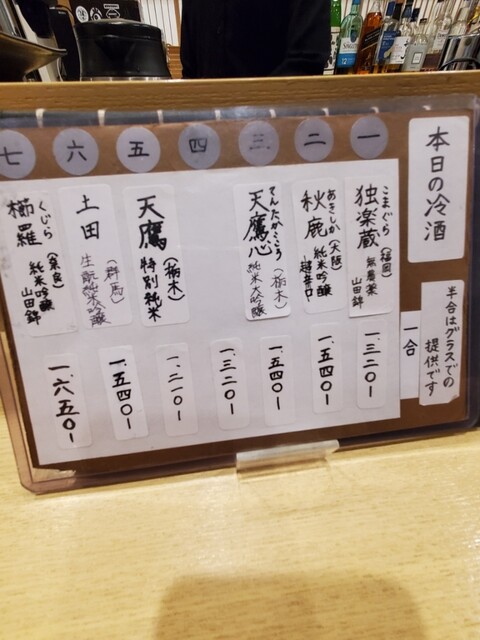 本日の冷酒
半合はグラスでの
提供です
一合
一
こまぐら
独楽蔵
(福岡)
無農薬
山田錦
一、三二〇-
二
あきしか
秋鹿
(大阪)
純米吟醸
超辛口
一、五四〇-
三
てんたかこころ
天鷹心
(栃木)
純米大吟醸
一、五四〇-
四
一、三二〇-
五
天鷹
(栃木)
特別純米
一、二一〇-
六
土田
(群馬)
生酛純米吟醸
一、五四〇-
七
くじら
櫛羅
(奈良)
純米吟醸
山田錦
一、六五〇-